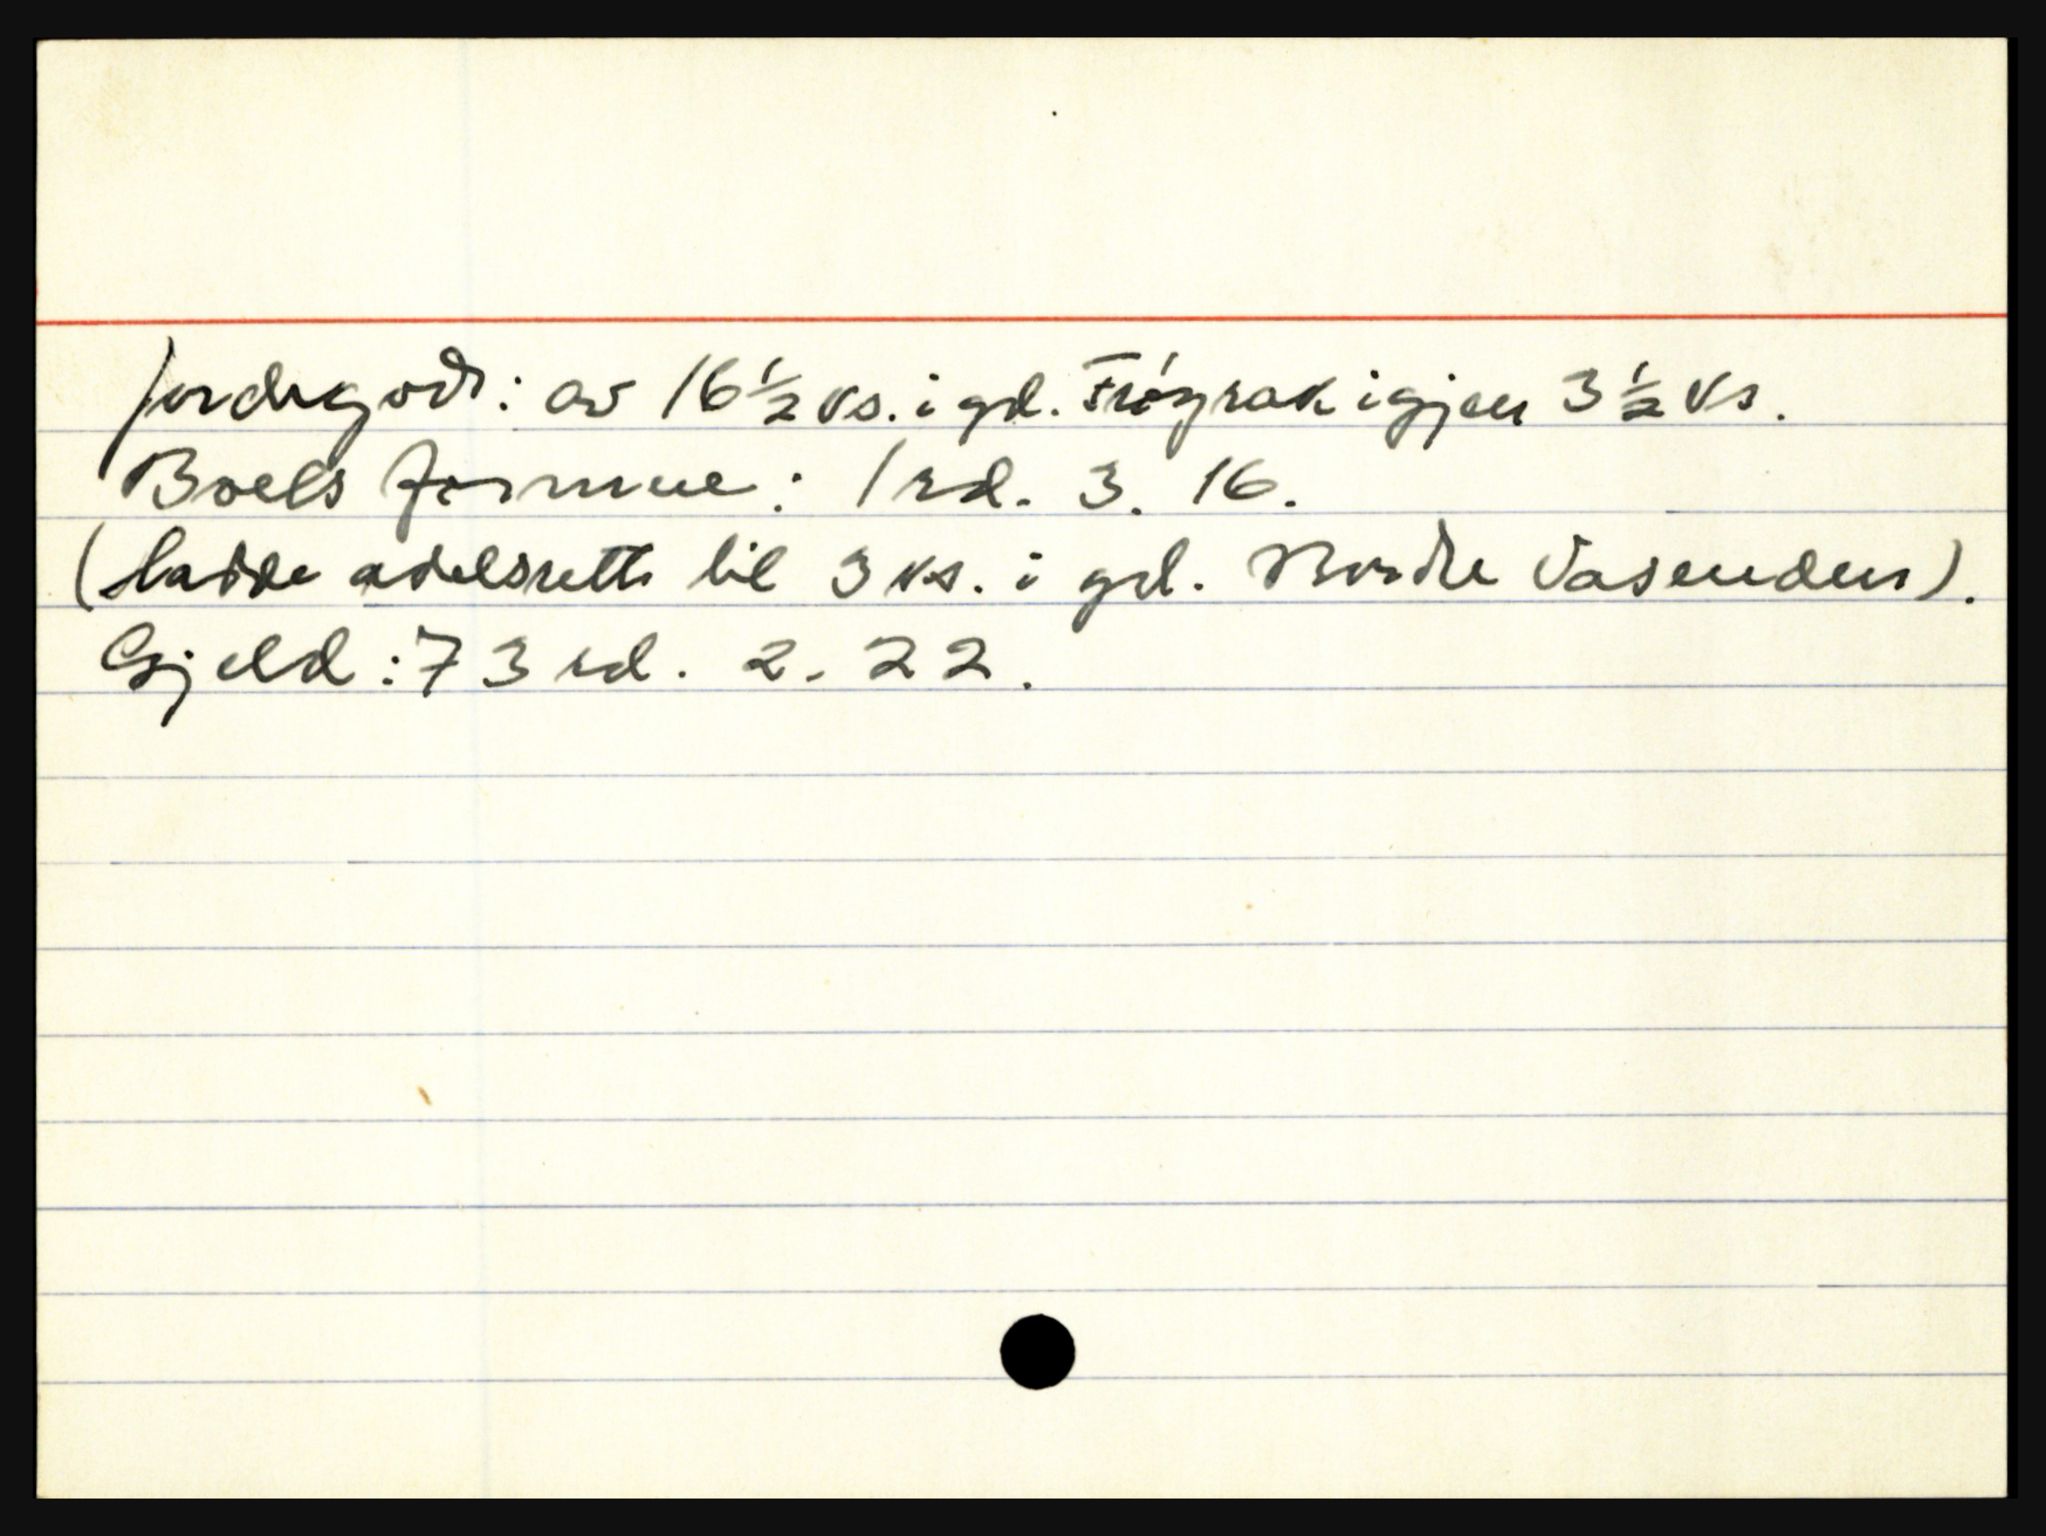 Jordegods: av 16 ½ ks. i gd. Frøyrak igjen 3 ½ ks.
Boels formue: 1 rd. 3. 16.
(hadde odelsrett til 3 ks. i gd. Nordre Vasenden).
Gjeld: 73 rd. 2. 22.